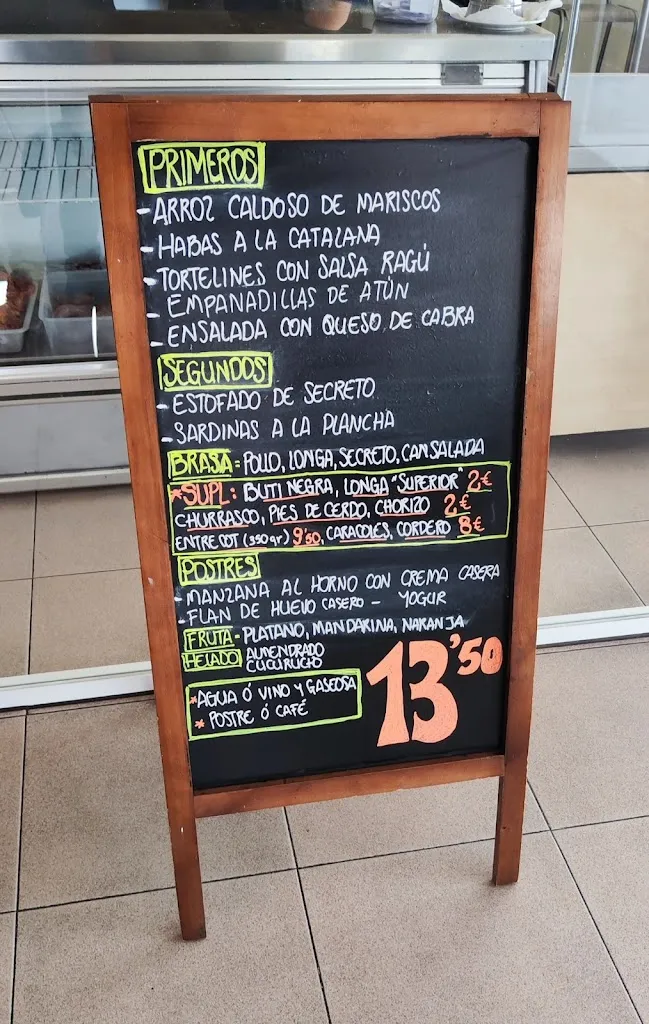 PRIMEROS
- ARROZ CALDOSO DE MARISCOS
- HABAS A LA CATALANA
- TORTELINES CON SALSA RAGÚ
- EMPANADILLAS DE ATÚN
- ENSALADA CON QUESO DE CABRA
SEGUNDOS
- ESTOFADO DE SECRETO
- SARDINAS A LA PLANCHA
BRASA: POLLO, LONGA, SECRETO, CANSALADA
*SUPL: BUTI NEGRA, LONGA "SUPERIOR" 2€
CHURRASCO, PIES DE CERDO, CHORIZO 2€
ENTRECOT (350gr) 9'50, CARACOLES, CORDERO 8€
POSTRES
- MANZANA AL HORNO CON CREMA CASERA
- FLAN DE HUEVO CASERO - YOGUR
FRUTA - PLATANO, MANDARINA, NARANJA
HELADO ALMENDRADO
CUCURUCHO
*AGUA Ó VINO Y GASEOSA
* POSTRE Ó CAFÉ
13'50